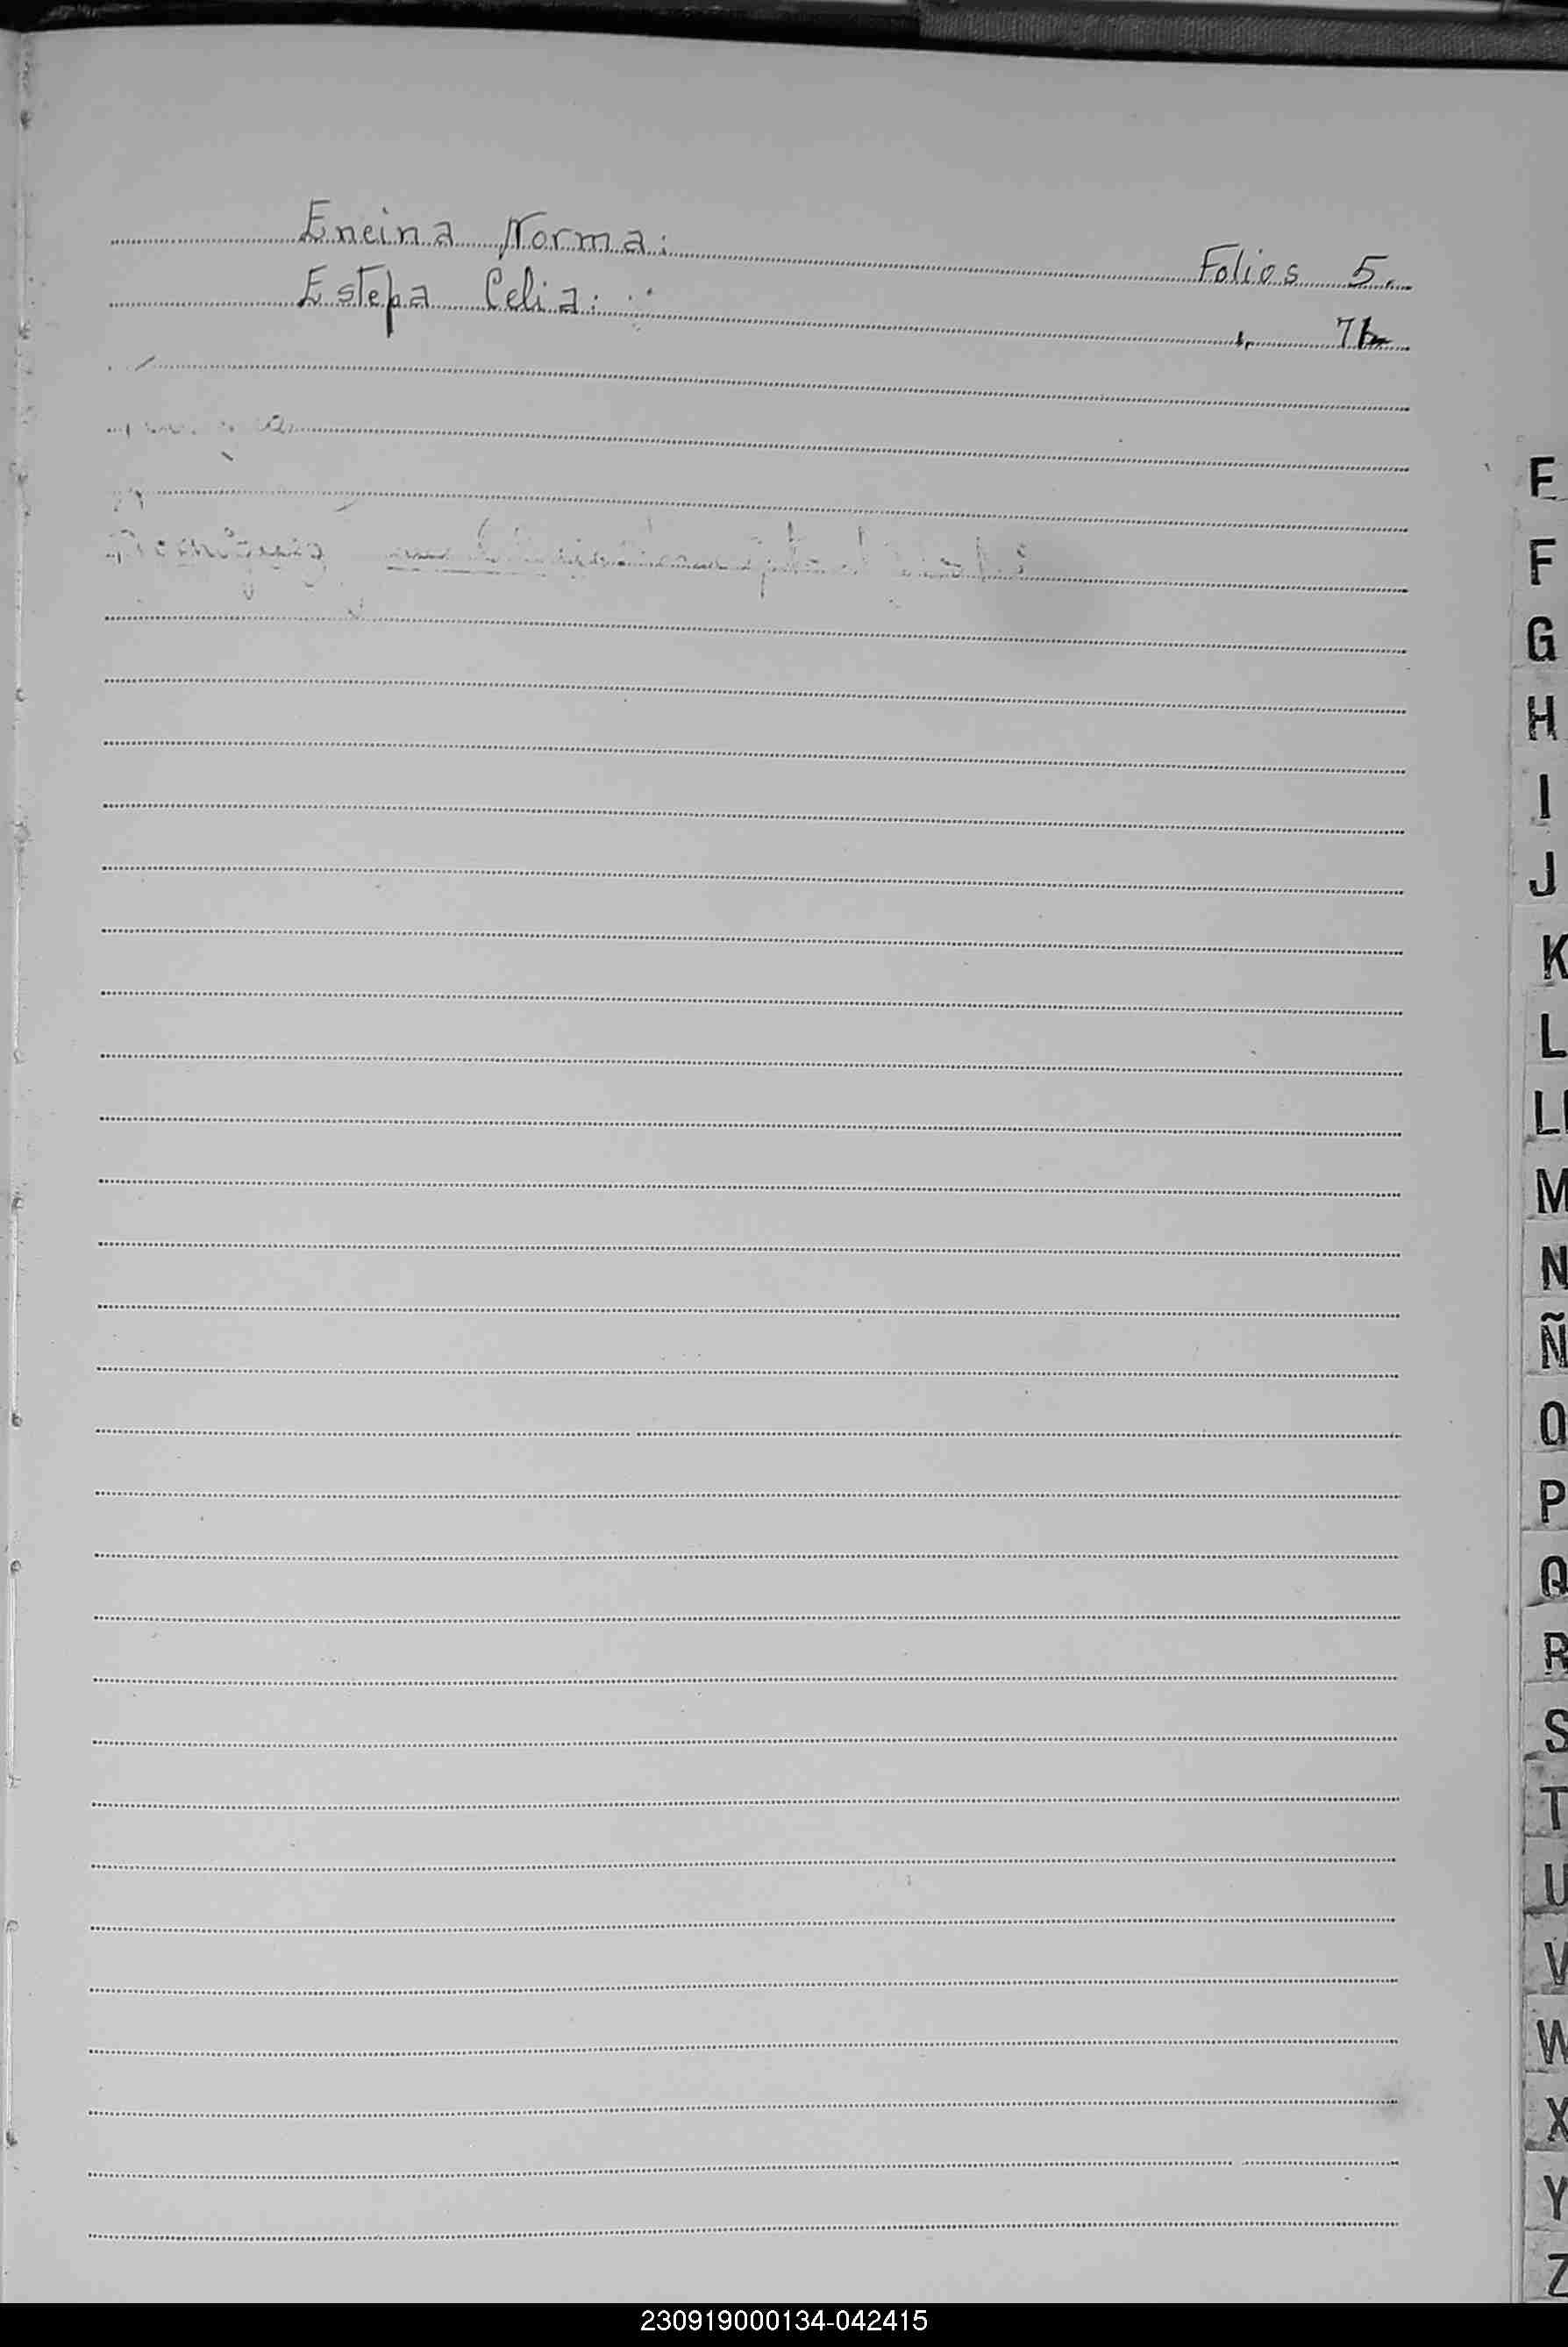 Encina Norma: Folios 5.
Estepa Celia: " 7
E
F
G
H
I
J
K
L
Ll
M
N
Ñ
O
P
Q
R
S
T
U
V
W
X
Y
Z
230919000134-042415